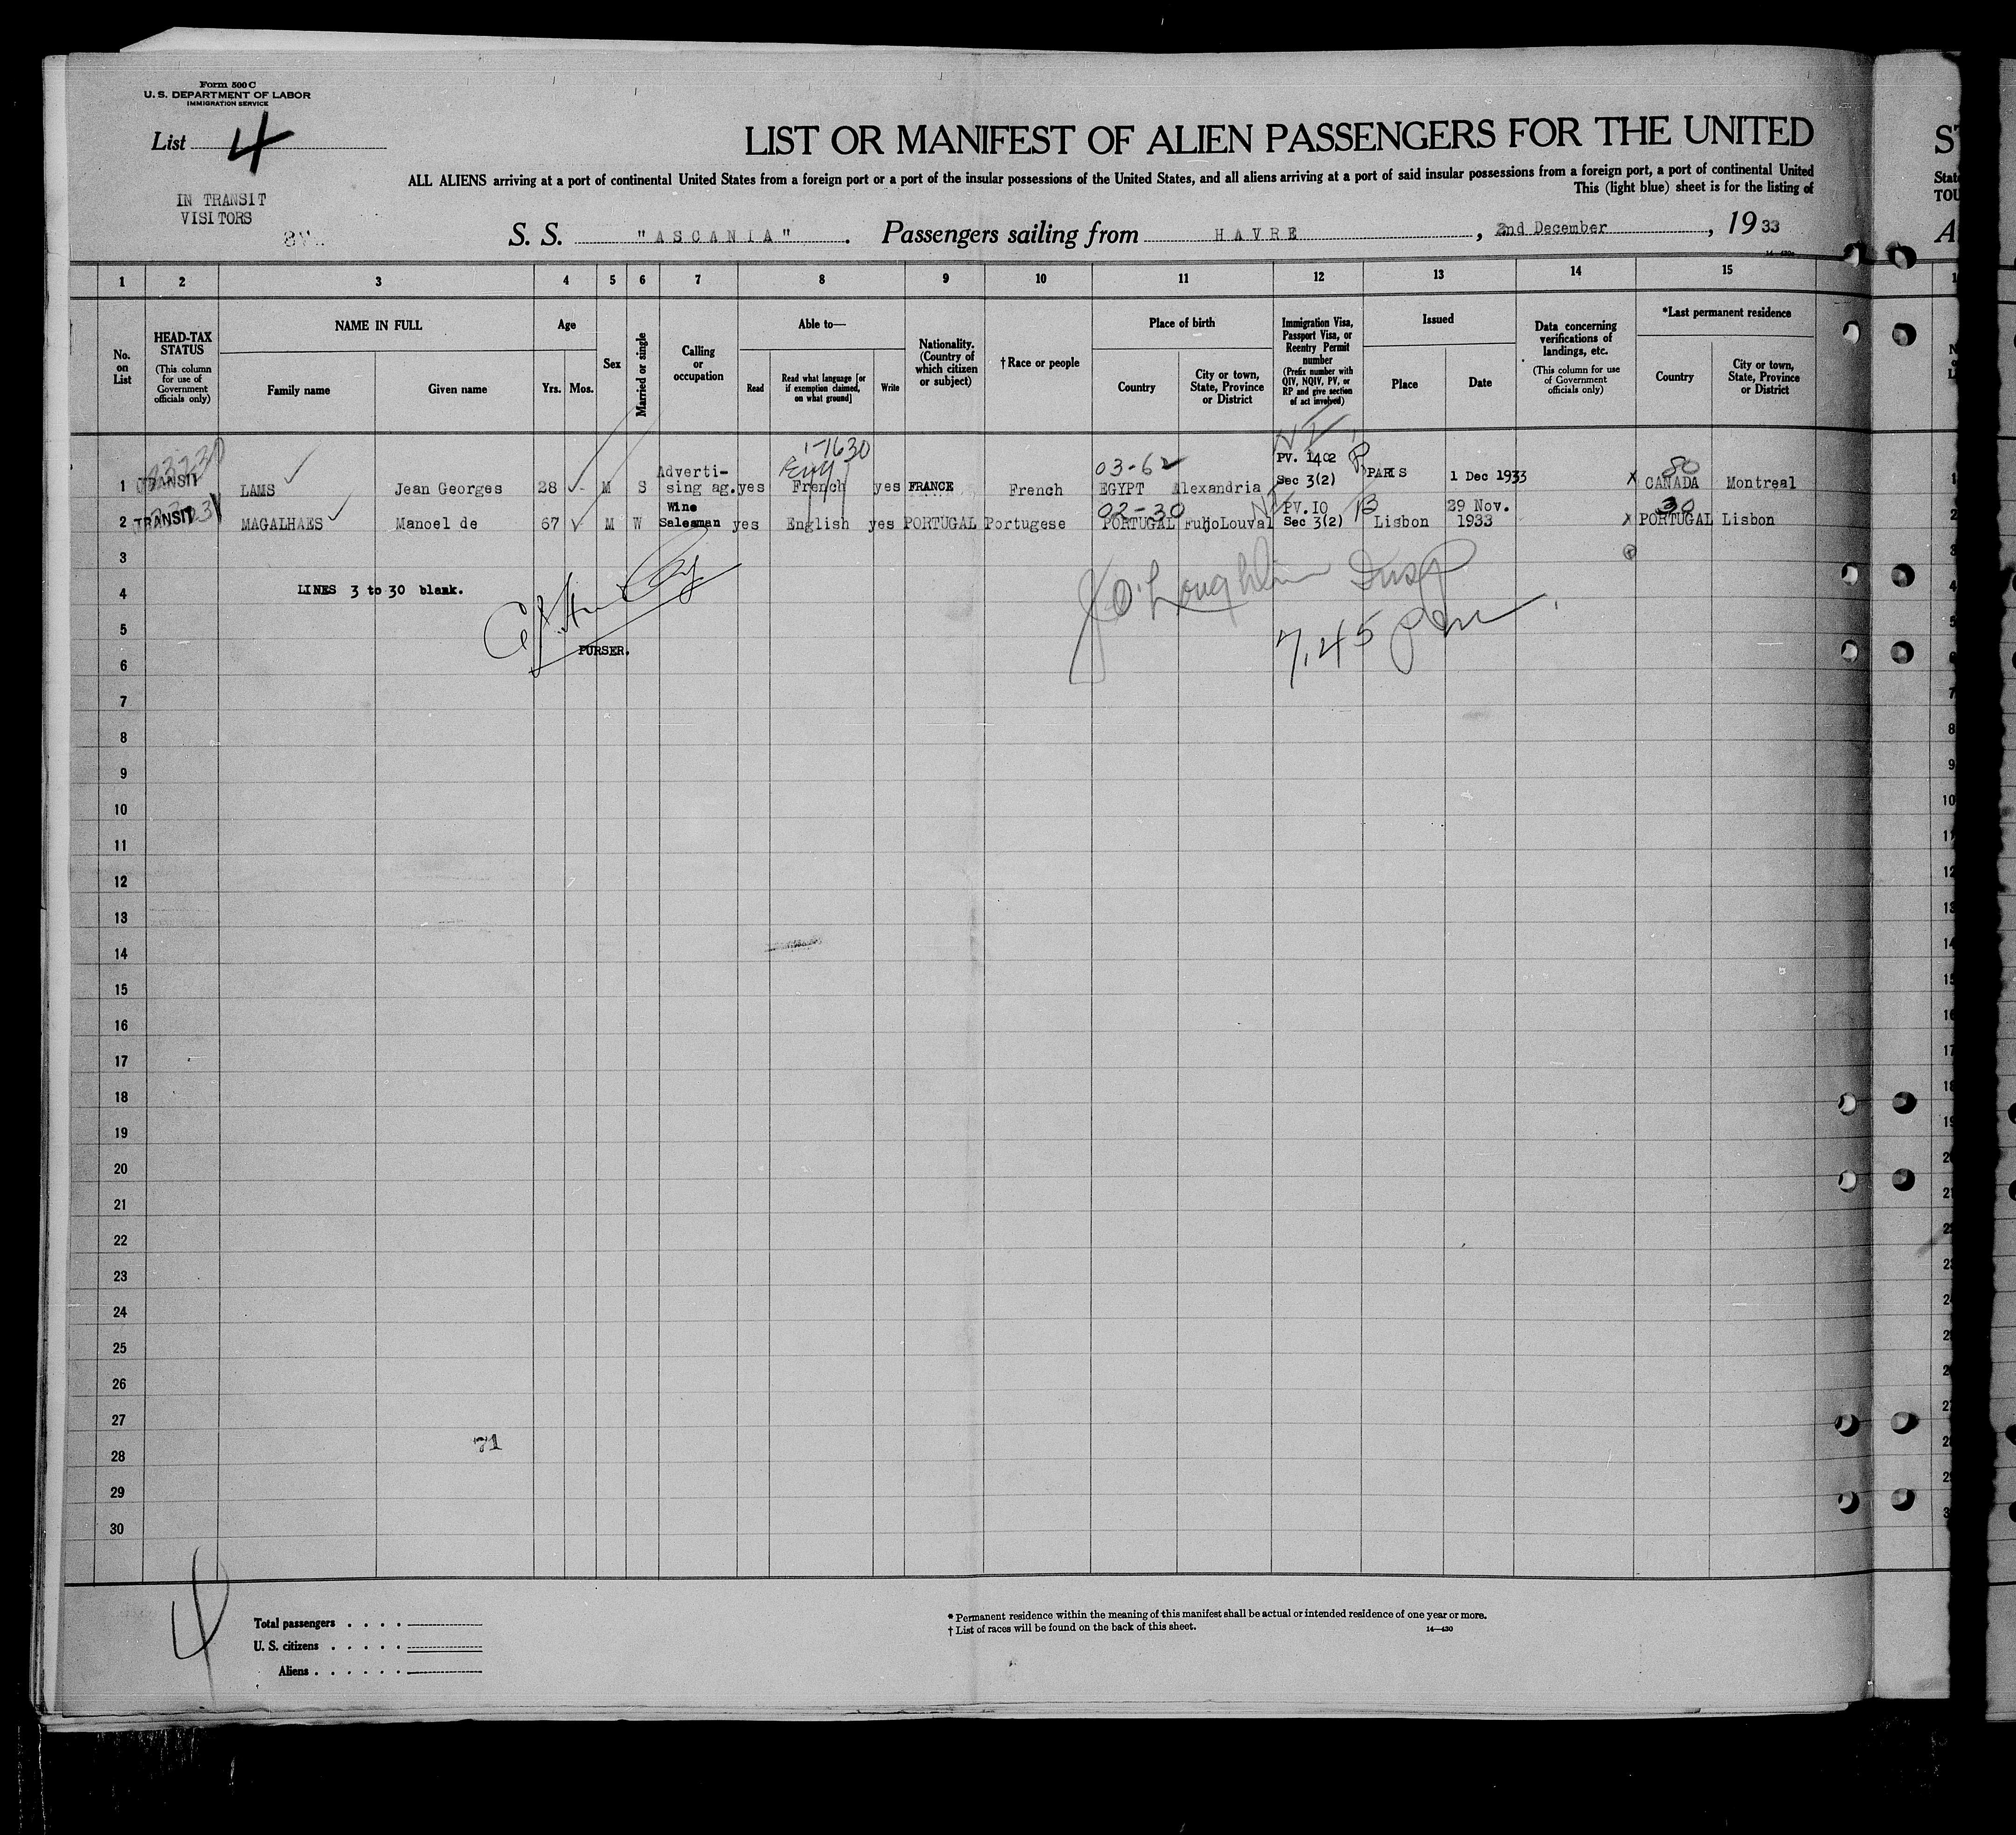 Form 500 C
U. S. DEPARTMENT OF LABOR
IMMIGRATION SERVICE
List 4
LIST OR MANIFEST OF ALIEN PASSENGERS FOR THE UNITED
ALL ALIENS arriving at a port of continental United States from a foreign port or a port of the insular possessions of the United States, and all aliens arriving at a port of said insular possessions from a foreign port, a port of continental United
This (light blue) sheet is for the listing of
IN TRANSIT
VISITORS
S. S. "ASCANIA". Passengers sailing from HAVRE, 2nd December, 1933
1 2 3 4 5 6 7 8 9 10 11 12 13 14 15
No. on List
HEAD-TAX STATUS (This column for use of Government officials only)
NAME IN FULL
Family name
Given name
Age
Yrs. Mos.
Sex
Married or single
Calling or occupation
Able to—
Read
Read what language [or if exemption claimed, on what ground]
Write
Nationality. (Country of which citizen or subject)
† Race or people
Place of birth
Country
City or town, State, Province or District
Immigration Visa, Passport Visa, or Reentry Permit number (Prefix number with QIV, NQIV, PV, or RP and give section of act involved)
Issued
Place
Date
Data concerning verifications of landings, etc. (This column for use of Government officials only)
*Last permanent residence
Country
City or town, State, Province or District
1 TRANSIT LAMS Jean Georges 28 M S Adverti-sing ag. yes Eng French yes FRANCE French 03-62 EGYPT Alexandria PV. 1402 Sec 3(2) PARIS 1 Dec 1933 x 80 CANADA Montreal
2 TRANSIT MAGALHAES Manoel de 67 M W Wine Salesman yes English yes PORTUGAL Portugese 02-30 PORTUGAL PV. 10 Sec 3(2) Lisbon 29 Nov. 1933 x 30 PORTUGAL Lisbon
3
4 LINES 3 to 30 blank.
5 7.45 pm
6 PURSER.
7
8
9
10
11
12
13
14
15
16
17
18
19
20
21
22
23
24
25
26
27
71
28
29
30
4
Total passengers
U. S. citizens
Aliens
* Permanent residence within the meaning of this manifest shall be actual or intended residence of one year or more.
† List of races will be found on the back of this sheet.
14—430